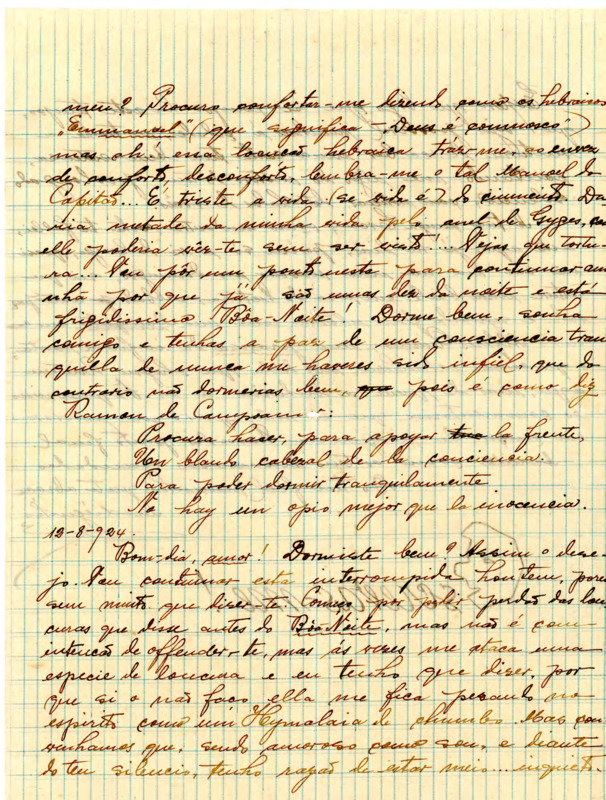 meu? Procuro confortar-me dizendo como os hebraicos
"Emmanuel" (que significa - Deus é comnosco)
mas, oh! essa locução hebraica tráz-me, ao envez
de conforto, desconforto, lembra-me o tal Manoel do
Capitão... É triste a vida (se vida é) do ciumento. Da-
ria metade da minha vida pelo anel de Gyges,
elle poderia vêr-te sem ser visto!... Vejas que tortu-
ra... Vou pôr um ponto nesta para continuar ama-
nhã por que já são umas dez da noite e está
frigidissimo Bôa-Noite! Dorme bem, sonha
comigo e tenhas a paz de um consciencia tran
quilla de nunca me haveres sido infiel, que do
contrario não dormerias bem, pois é como diz
Ramon de Campoamor:
Procura hacer, para apoyar la frente,
Un blando cabezal de la conciencia.
Para poder dormir tranquilamente
No hay un opio mejor que la inocencia.
12-8-924.
Bom-dia, amor! Dormiste bem? Assim o dese-
jo. Vou continuar esta interrompida hontem, porem
sem muito que dizer-te. Começo por pedir perdão das lou
curas que disse antes do Bôa-Noite, mas não é com
intenção de offender-te, mas ás vezes me ataca uma
especie de loucura e eu tenho que dizer, por
que si o não faço ella me fica pezando no
espirito como um Hymalaia de chumbo. Mas con
venhamos que, sendo amoroso como sou, e diante
do teu silencio, tenho razão de estar meio... inquieto.